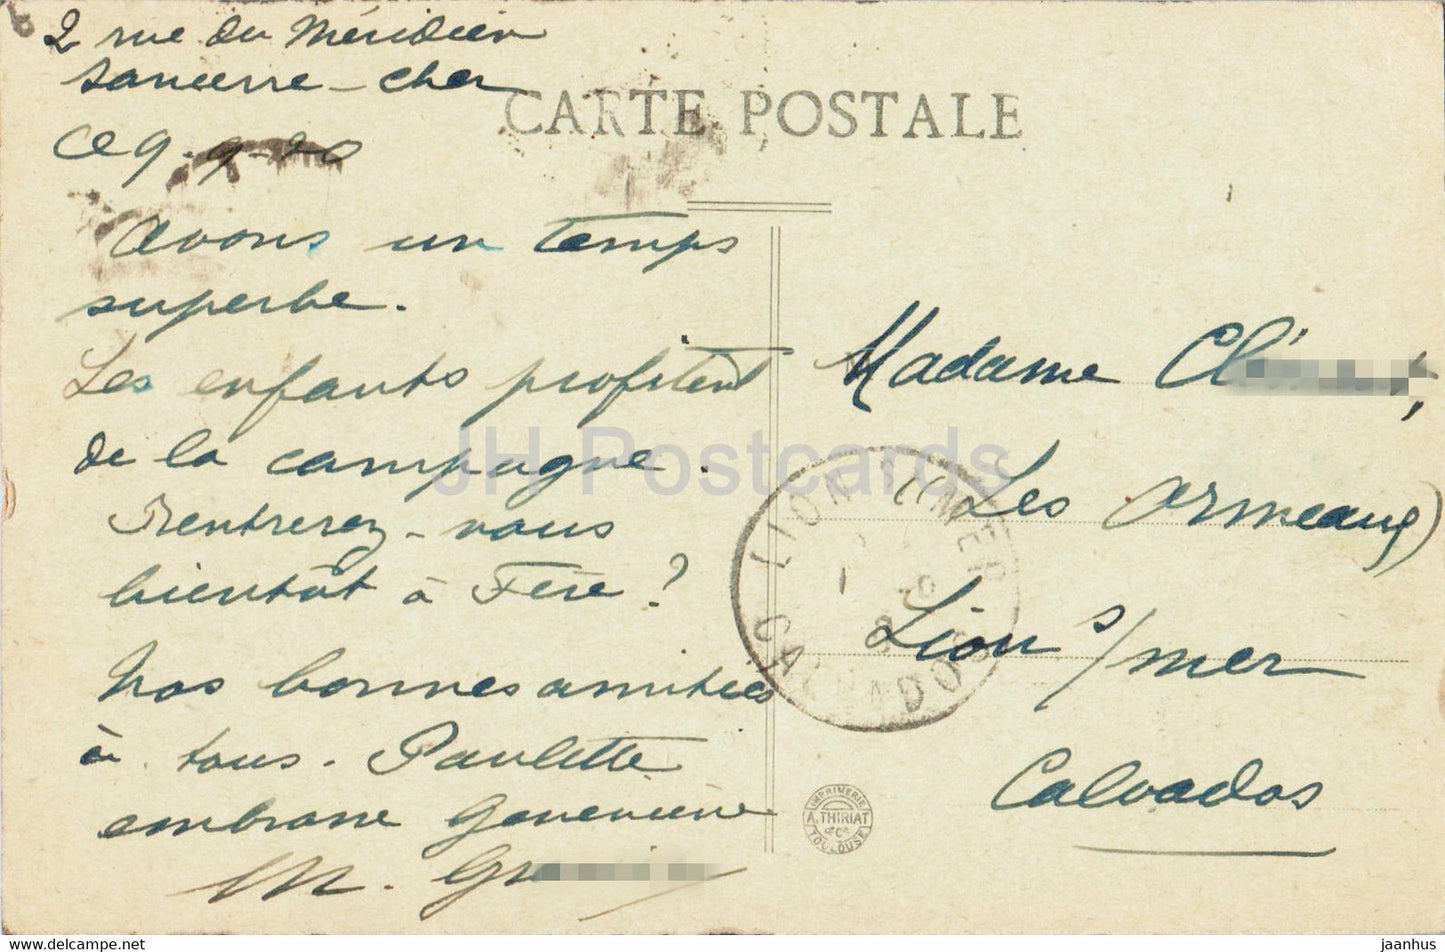 2 rue du Méridien
Sancerre - Cher
Ce 9-9-20
CARTE POSTALE
Avons un temps
superbe.
Les enfants profitent
de la campagne.
Rentrerez-vous
bientôt à Fère ?
Nos bonnes amitiés
à tous. Paulette
embrasse Geneviève
M. Gr
Madame Cl
Les Ormeaux
Lion s/mer
Calvados
LION SUR MER
CALVADOS
IMPRIMERIE
A. THIRIAT
& Cie
TOULOUSE
JH Postcards
www.jaanhus-ostcard.com
jaanhus